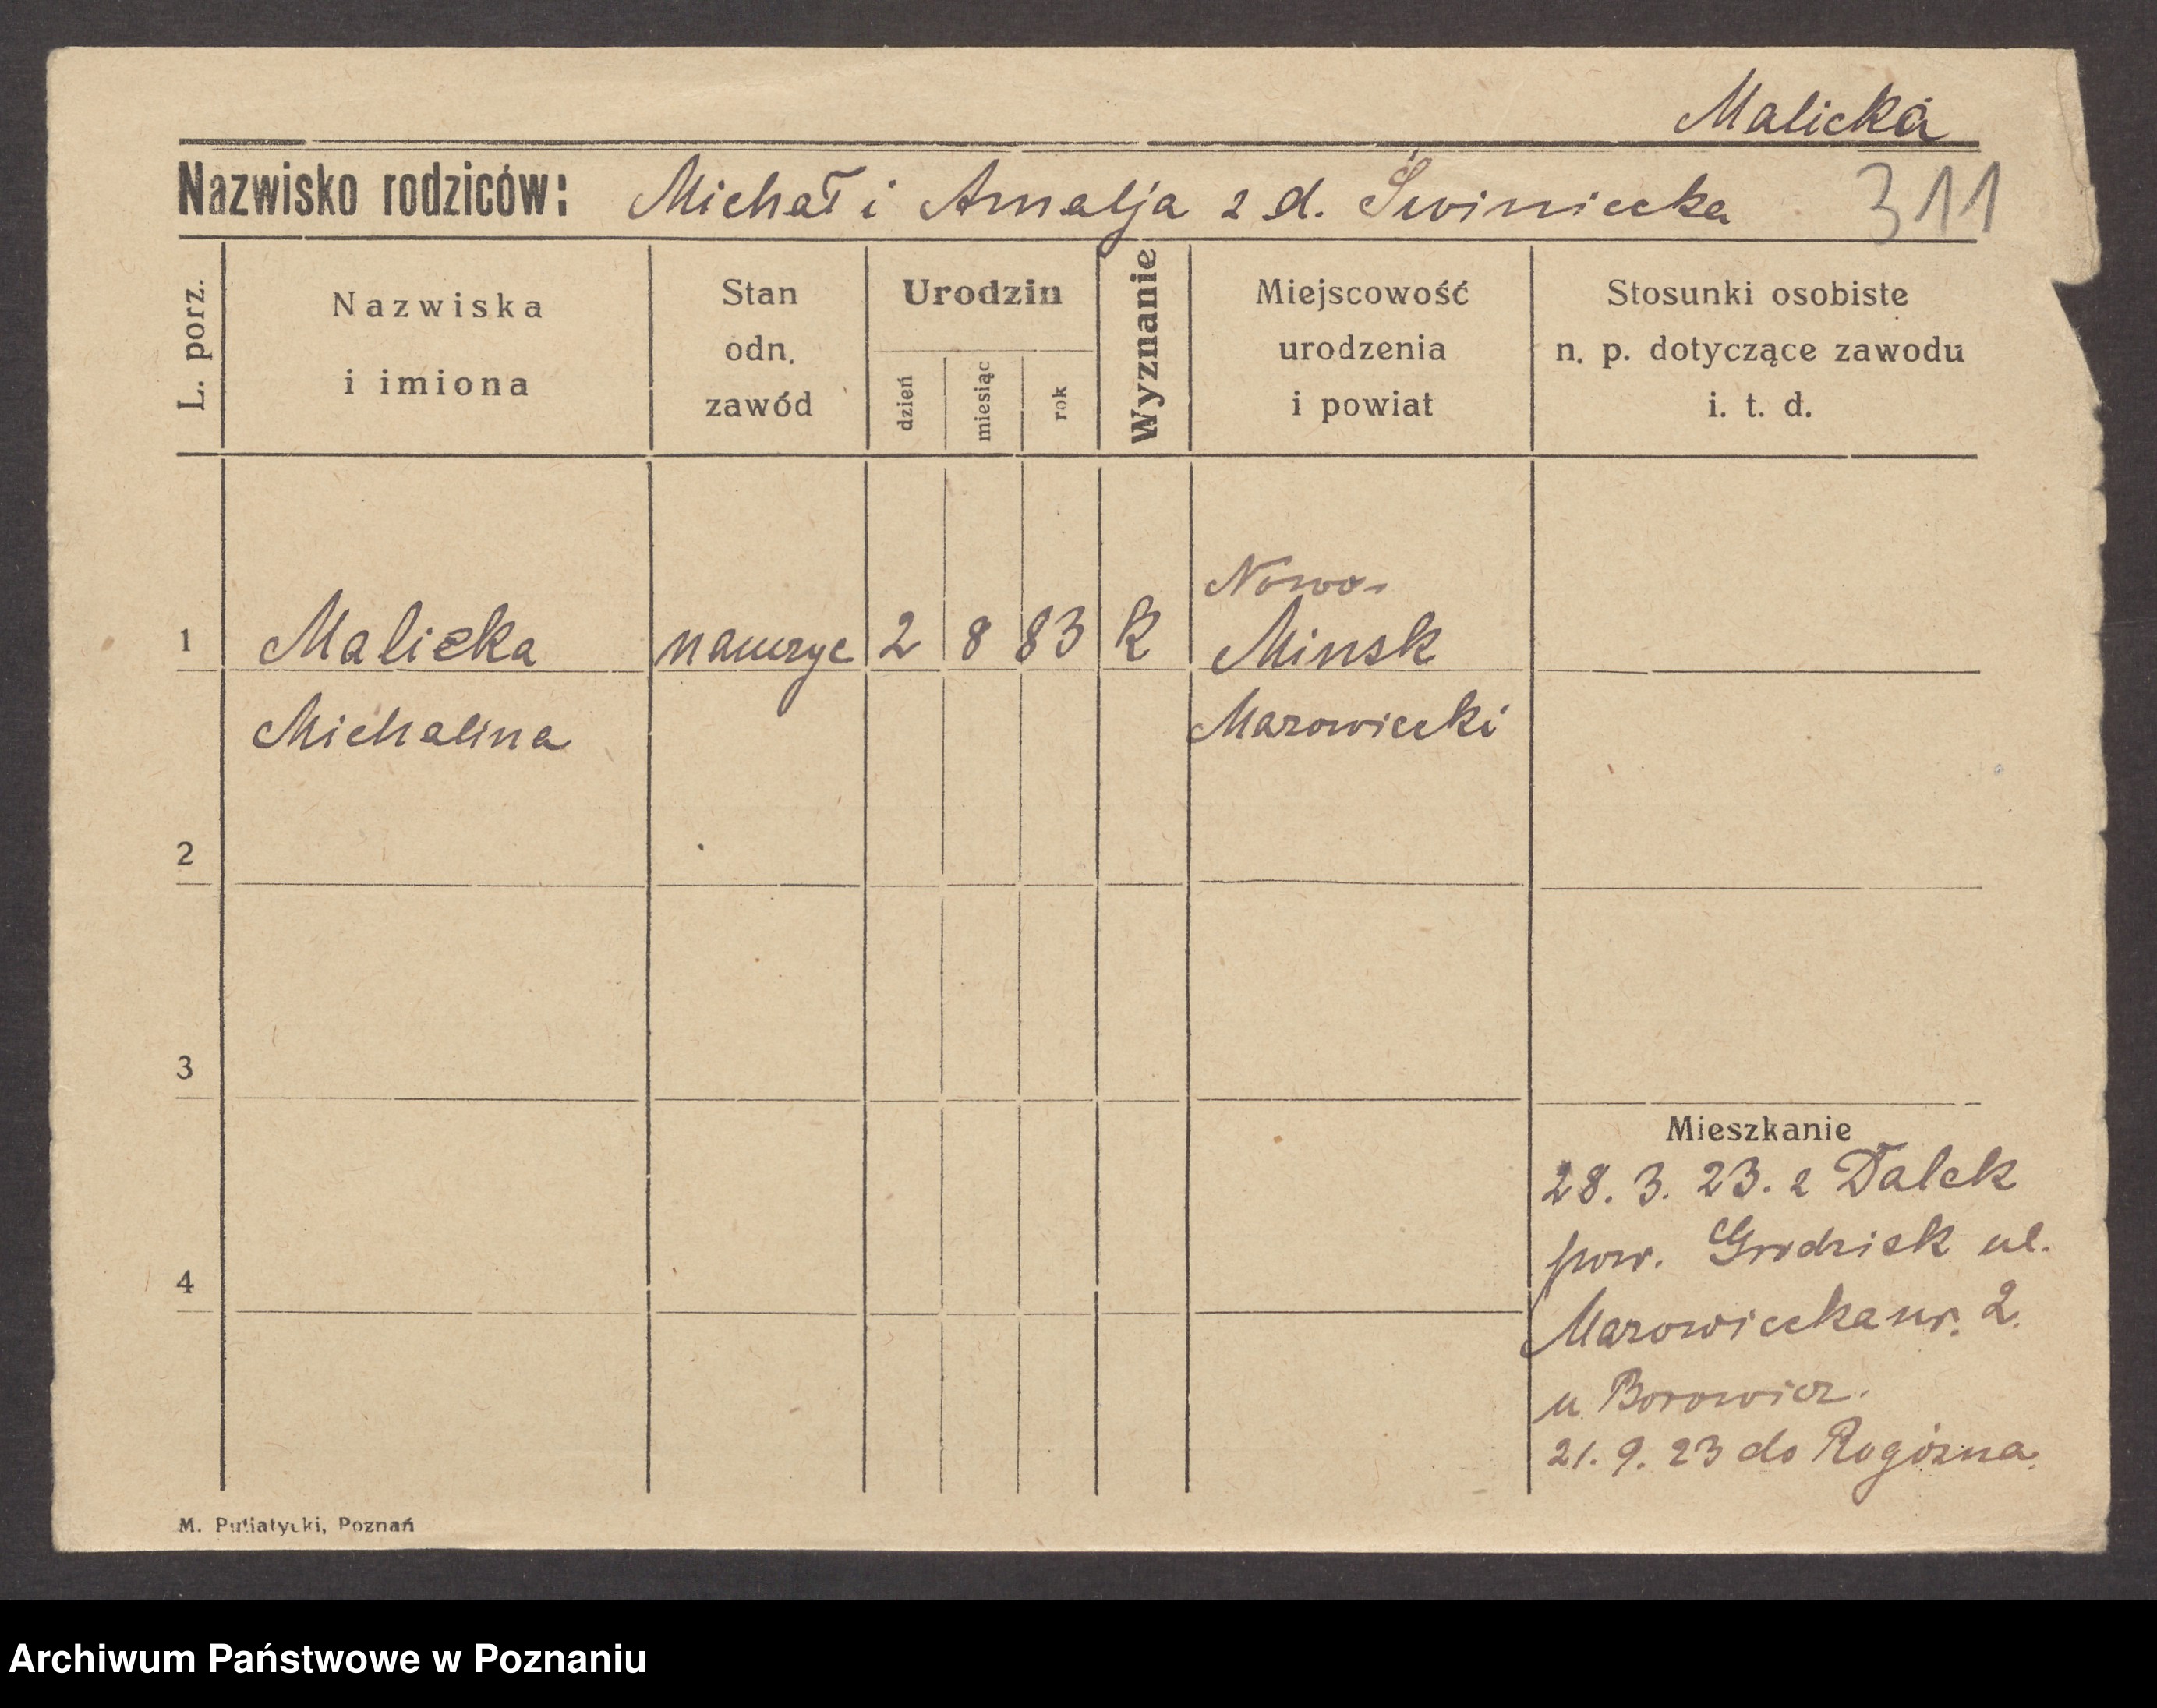 Malicka
Nazwisko rodziców: Michał i Amalja z d. Świniecka 311
L. porz.
Nazwiska
i imiona
Stan
odn.
zawód
Urodzin
dzień
miesiąc
rok
Wyznanie
Miejscowość
urodzenia
i powiat
Stosunki osobiste
n. p. dotyczące zawodu
i. t. d.
Nowo-
1 Malicka nauczyc 2 8 83 R Minsk
Michalina Mazowiecki
2
3
Mieszkanie
28. 3. 23. z Dalek
pow. Grodzisk ul.
4
Mazowiecka nr. 2.
u Borowicz.
21. 9. 23 do Rogózna.
M. Putiatycki, Poznań
Archiwum Państwowe w Poznaniu